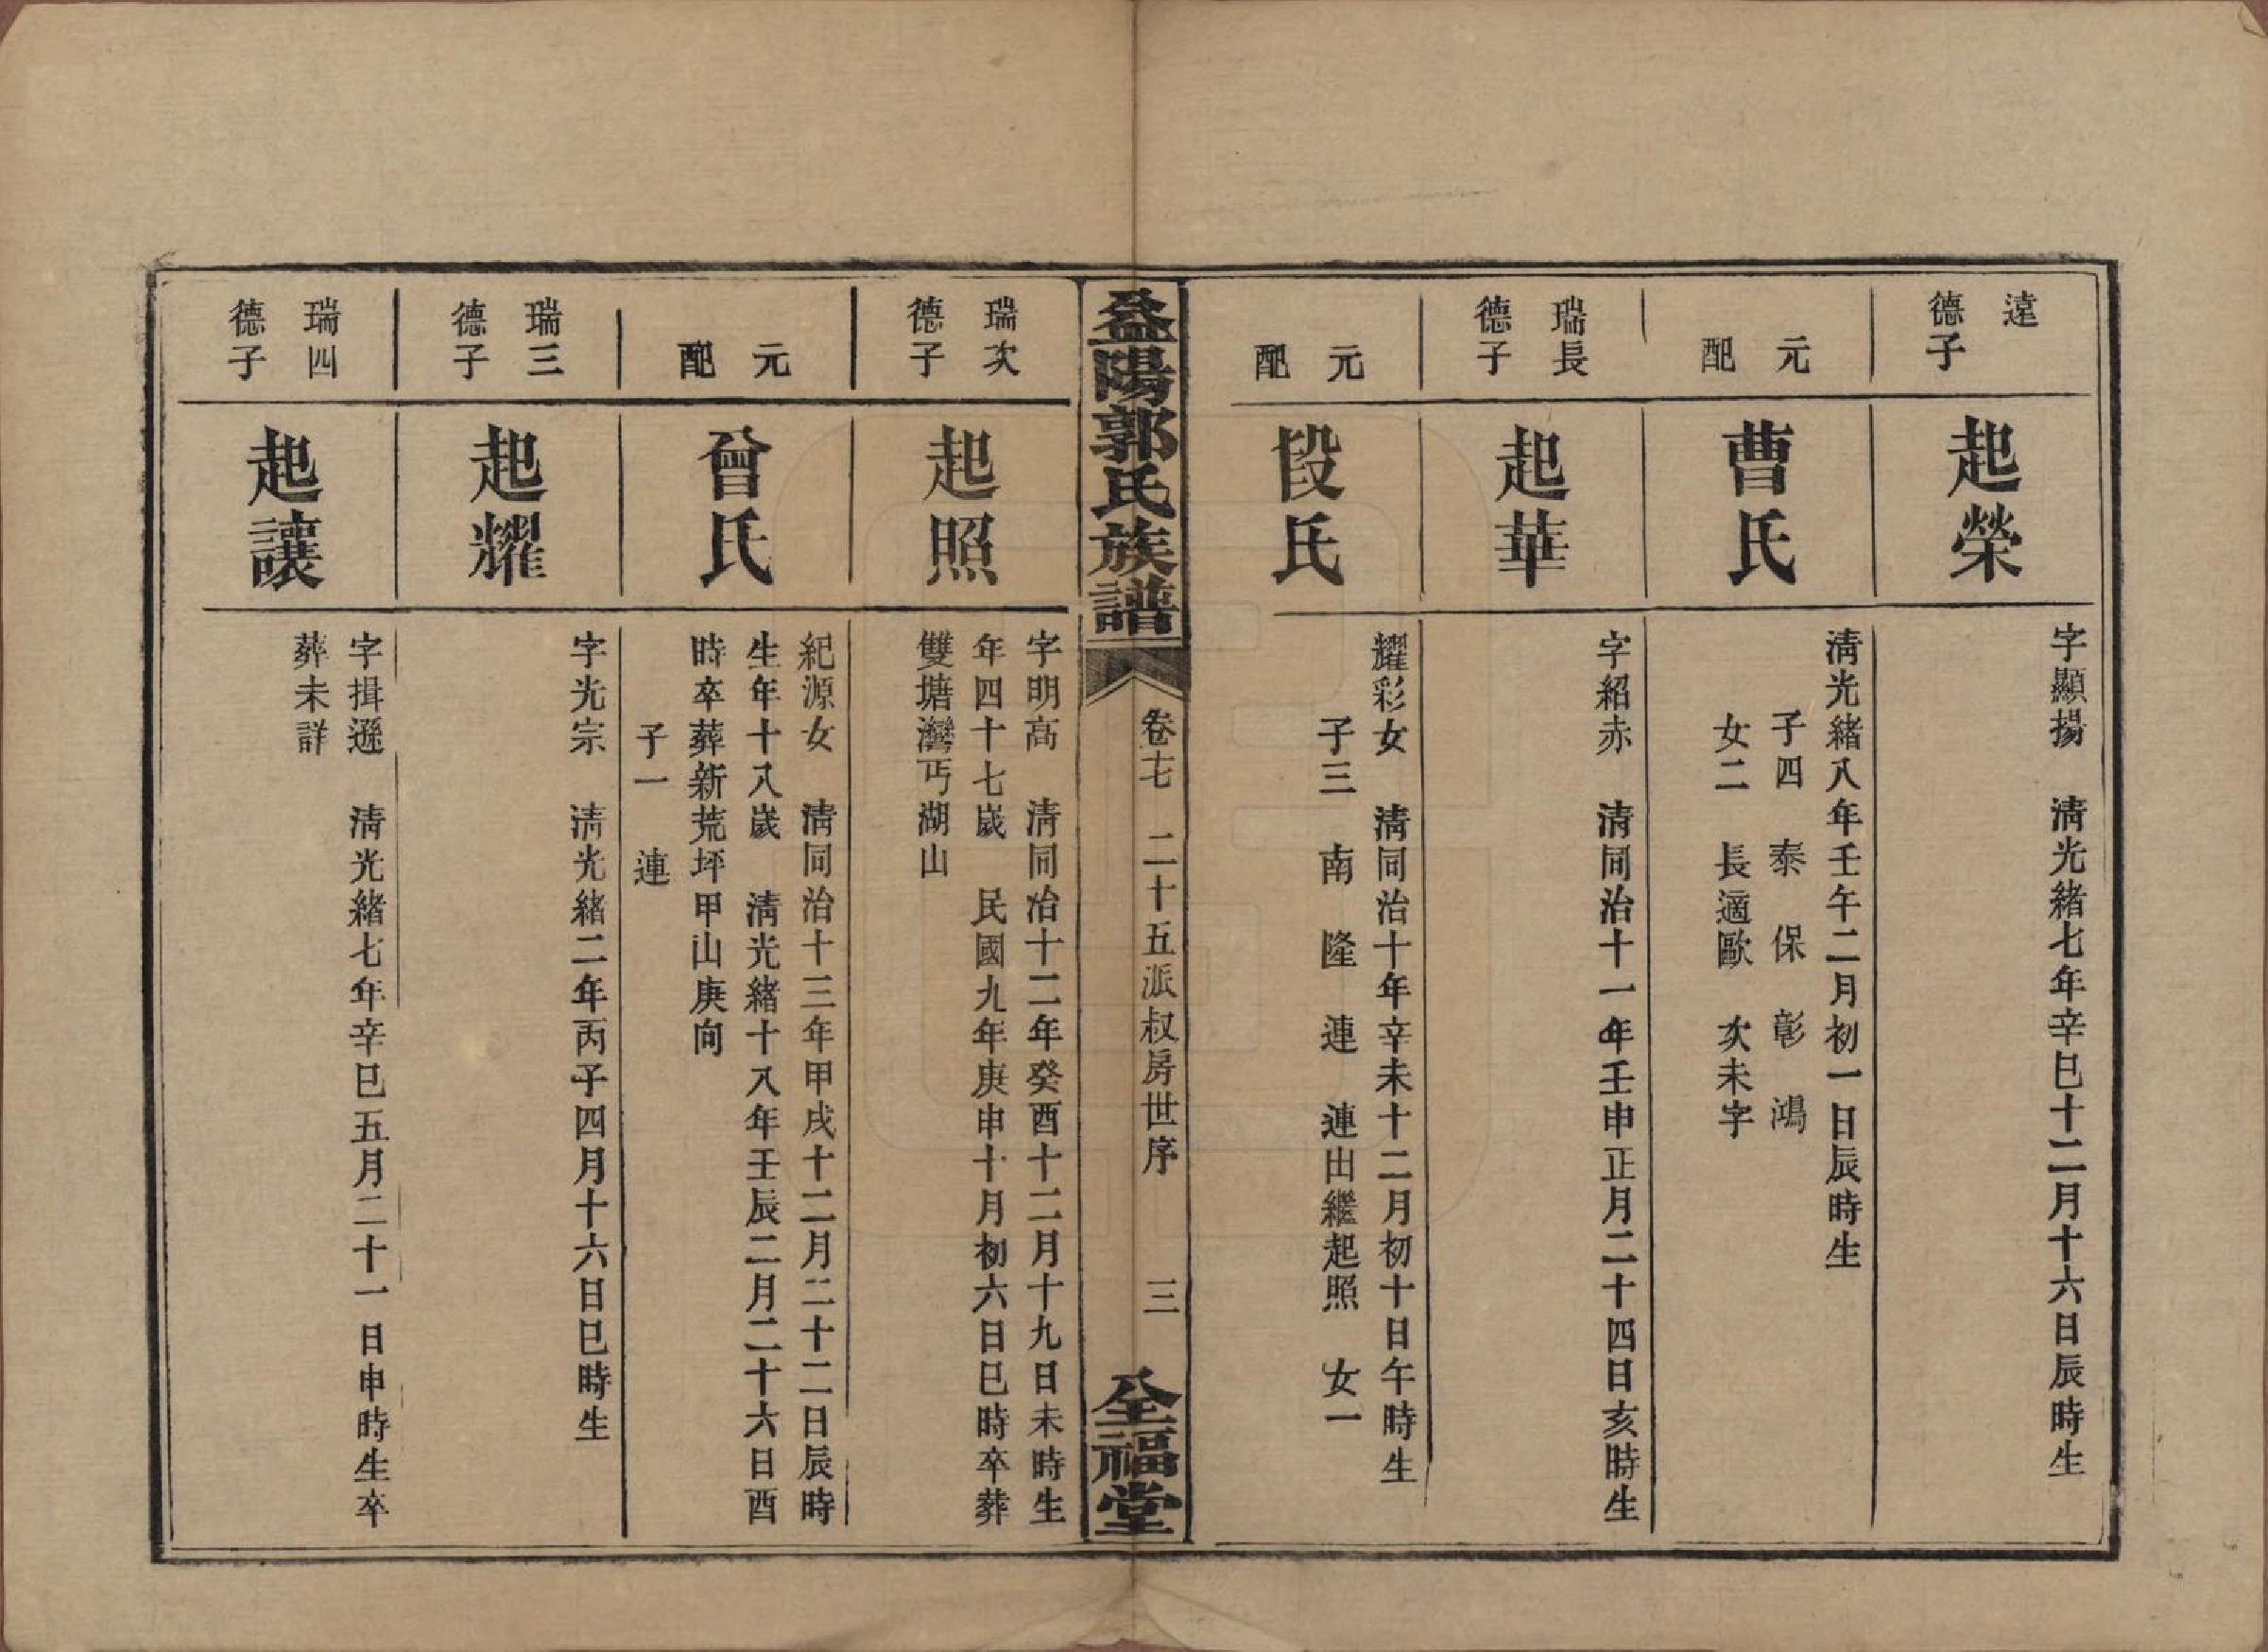 遠
德子
起榮
字顯揚　淸光緖七年辛巳十二月十六日辰時生
元
配
曹氏
淸光緖八年壬午二月初一日辰時生
子四　泰　保　彰　鴻
女二　長適歐　次未字
瑞長
德子
起華
字紹赤　淸同治十一年壬申正月二十四日亥時生
元
配
段氏
耀彩女　淸同治十年辛未十二月初十日午時生
子三　南　隆　連　連出繼起照　女一
益陽郭氏族譜
卷十七　二十五派叔房世序　三
全福堂
瑞次
德子
起照
字明高　淸同治十二年癸酉十二月十九日未時生
年四十七歲　民國九年庚申十月初六日巳時卒葬
雙塘灣丐湖山
元
配
曾氏
紀源女　淸同治十三年甲戌十二月二十二日辰時
生年十八歲　淸光緖十八年壬辰二月二十六日酉
時卒葬新荒坪甲山庚向
子一　連
瑞三
德子
起耀
字光宗　淸光緖二年丙子四月十六日巳時生
瑞四
德子
起讓
字揖遜　淸光緖七年辛巳五月二十一日申時生卒
葬未詳